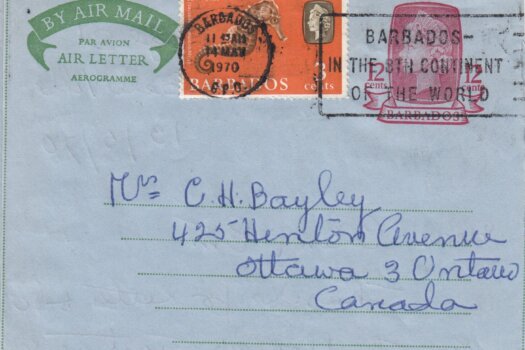 BY AIR MAIL
PAR AVION
AIR LETTER
AEROGRAMME
BARBADOS
11 15AM
14 MAY
1970
G.P.O.
BARBADOS 3 cents
BARBADOS
IN THE 8TH CONTINENT
OF THE WORLD
12 cents 12 cents
BARBADOS
Mrs C. H. Bayley
425 Hinton Avenue
Ottawa 3 Ontario
Canada